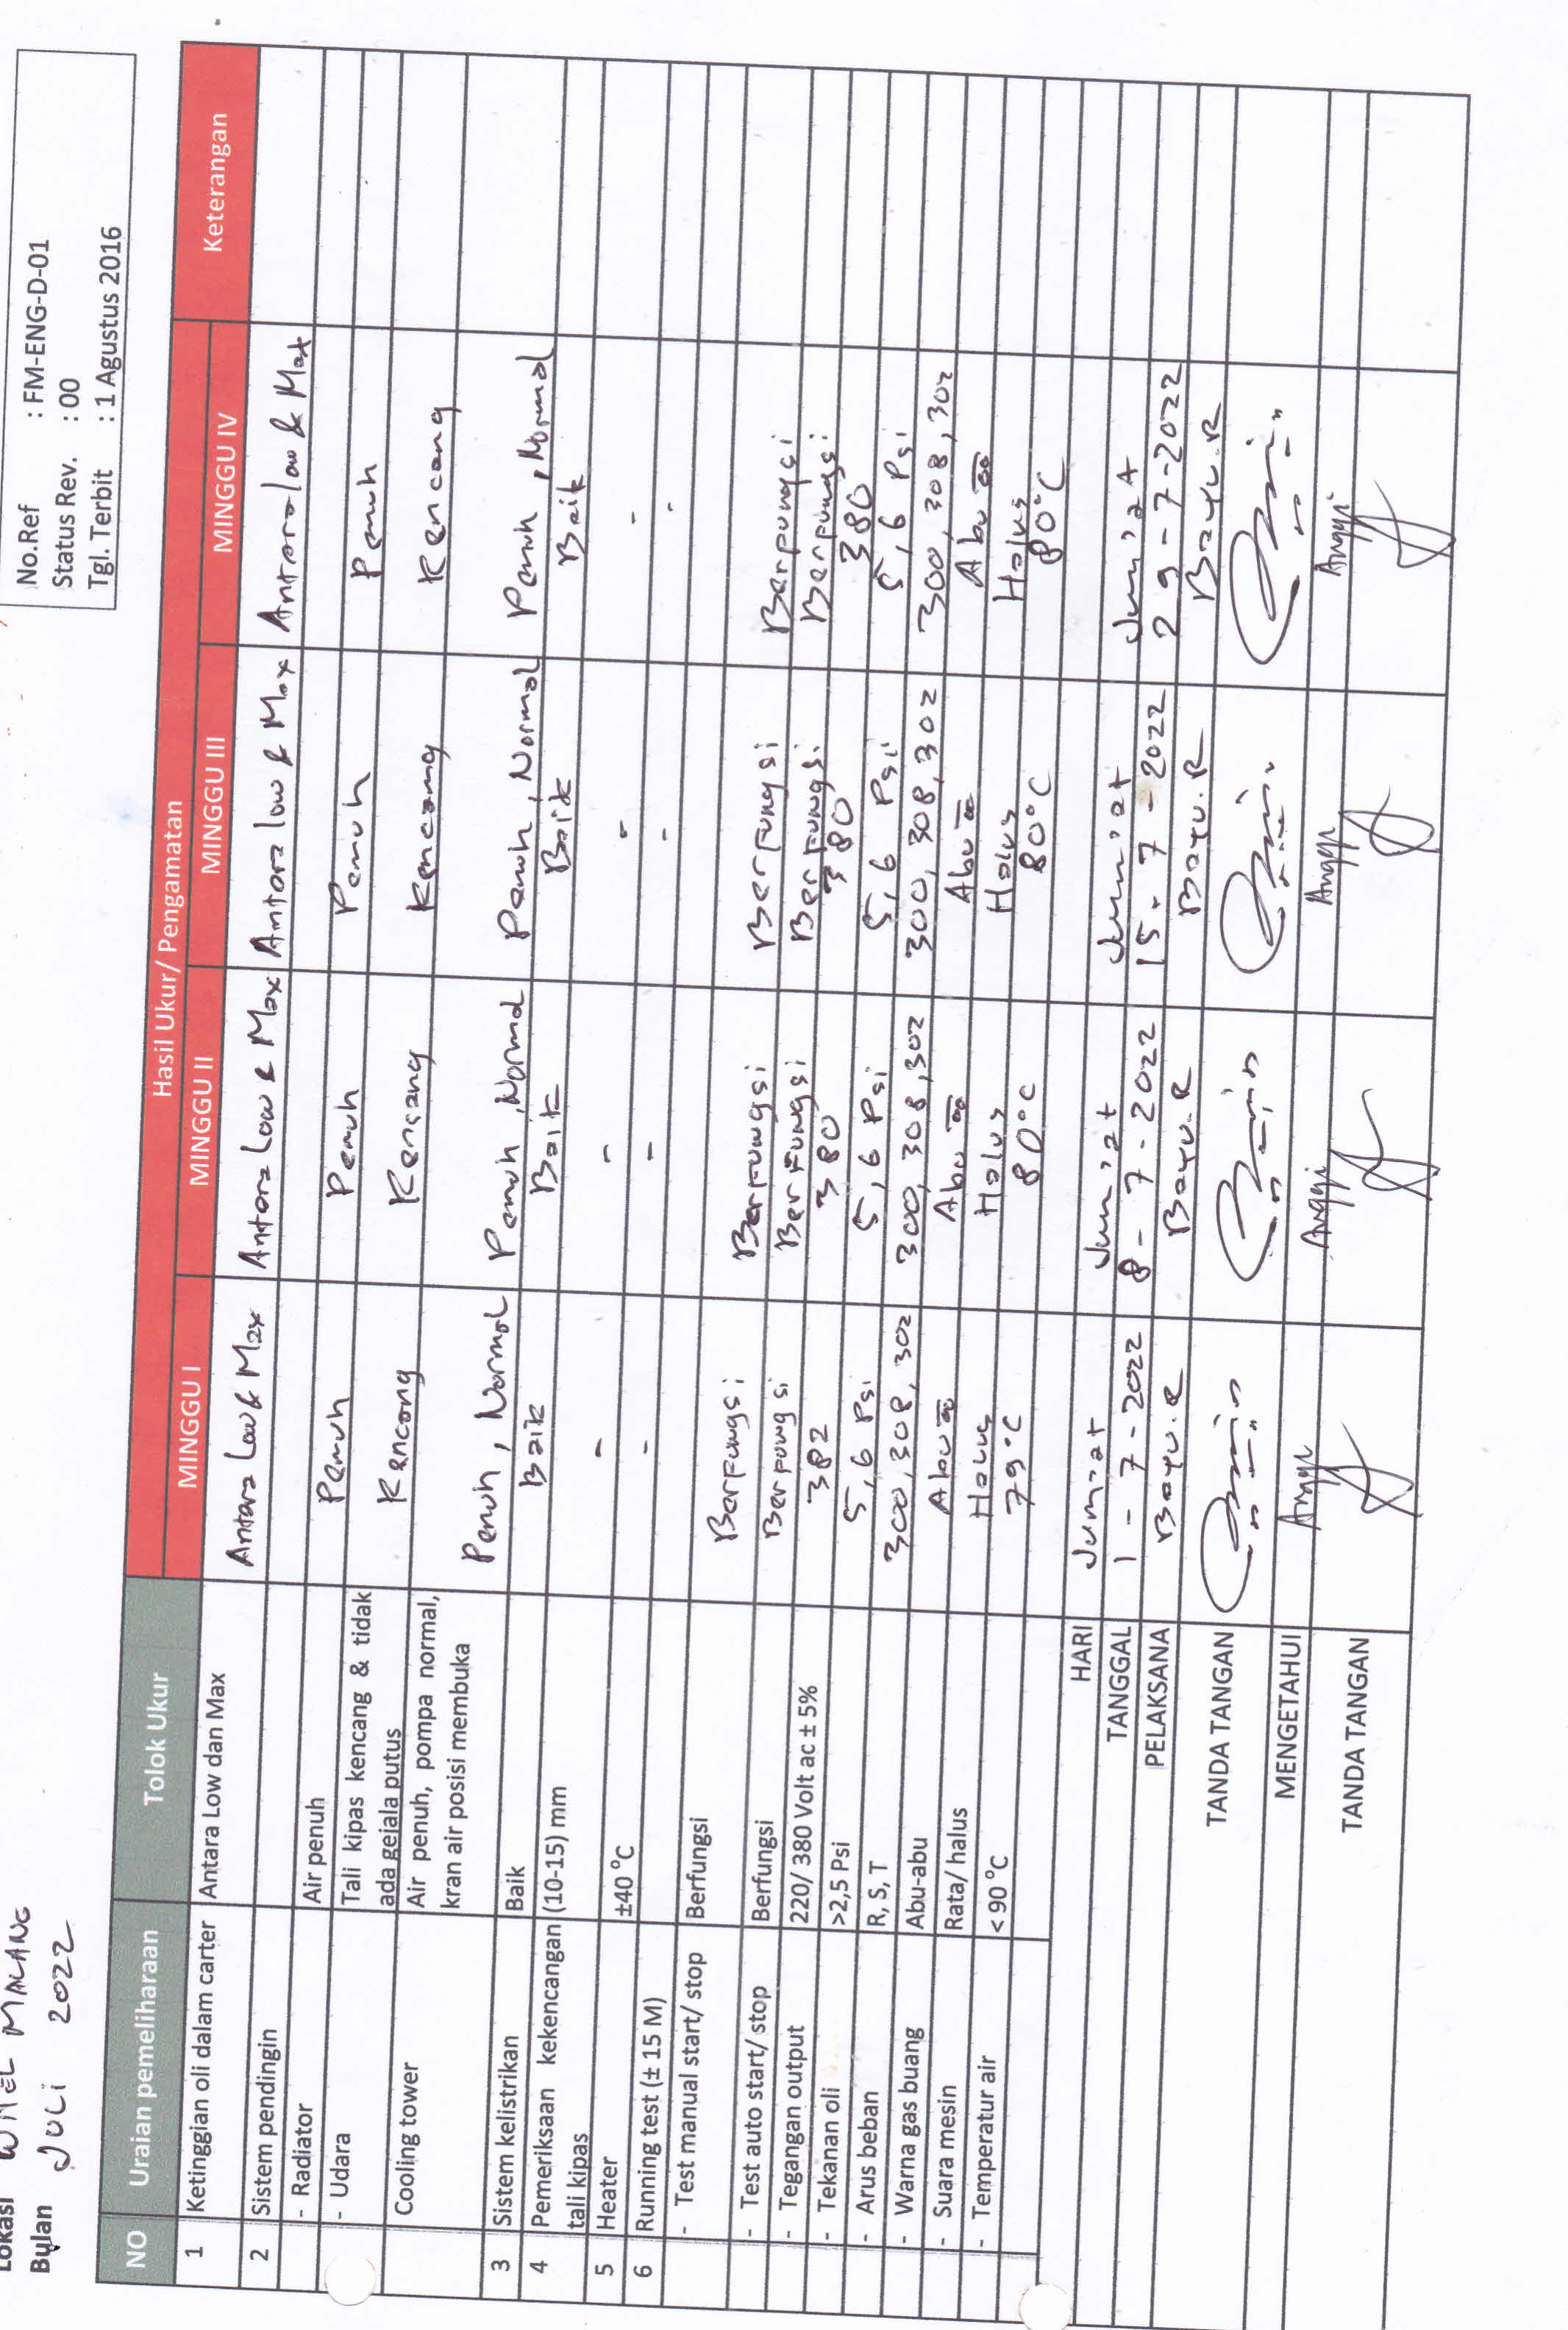 Lokasi WITEL MALANG
Bulan JULI 2022
No.Ref : FM-ENG-D-01
Status Rev. : 00
Tgl. Terbit : 1 Agustus 2016
NO Uraian pemeliharaan Tolok Ukur Hasil Ukur/ Pengamatan Keterangan
MINGGU I MINGGU II MINGGU III MINGGU IV
1 Ketinggian oli dalam carter Antara Low dan Max Antara Low & Max Antara Low & Max Antara low & Max Antara low & Max
2 Sistem pendingin
- Radiator Air penuh Penuh Penuh Penuh Penuh
- Udara Tali kipas kencang & tidak ada gejala putus Kencang Kencang Kencang Kencang
Cooling tower Air penuh, pompa normal, kran air posisi membuka Penuh, Normal Penuh, Normal Penuh, Normal Penuh, Normal
3 Sistem kelistrikan Baik Baik Baik Baik Baik
4 Pemeriksaan kekencangan tali kipas (10-15) mm - - - -
5 Heater ±40 °C - - - -
6 Running test (± 15 M)
- Test manual start/ stop Berfungsi Berfungsi Berfungsi Berfungsi Berfungsi
- Test auto start/ stop Berfungsi Berfungsi Berfungsi Berfungsi Berfungsi
- Tegangan output 220/ 380 Volt ac ± 5% 382 380 380 380
- Tekanan oli >2,5 Psi 5,6 Psi 5,6 Psi 5,6 Psi 5,6 Psi
- Arus beban R, S, T 300, 308, 302 300, 308, 302 300, 308, 302 300, 308, 302
- Warna gas buang Abu-abu Abu Abu Abu Abu
- Suara mesin Rata/ halus Halus Halus Halus Halus
- Temperatur air < 90 °C 79°C 80°C 80°C 80°C
HARI Jum'at Jum'at Jum'at Jum'at
TANGGAL 1 - 7 - 2022 8 - 7 - 2022 15 - 7 - 2022 29 - 7 - 2022
PELAKSANA Bayu.R Bayu.R Bayu.R Bayu.R
TANDA TANGAN
MENGETAHUI Anggi Anggi Anggi Anggi
TANDA TANGAN